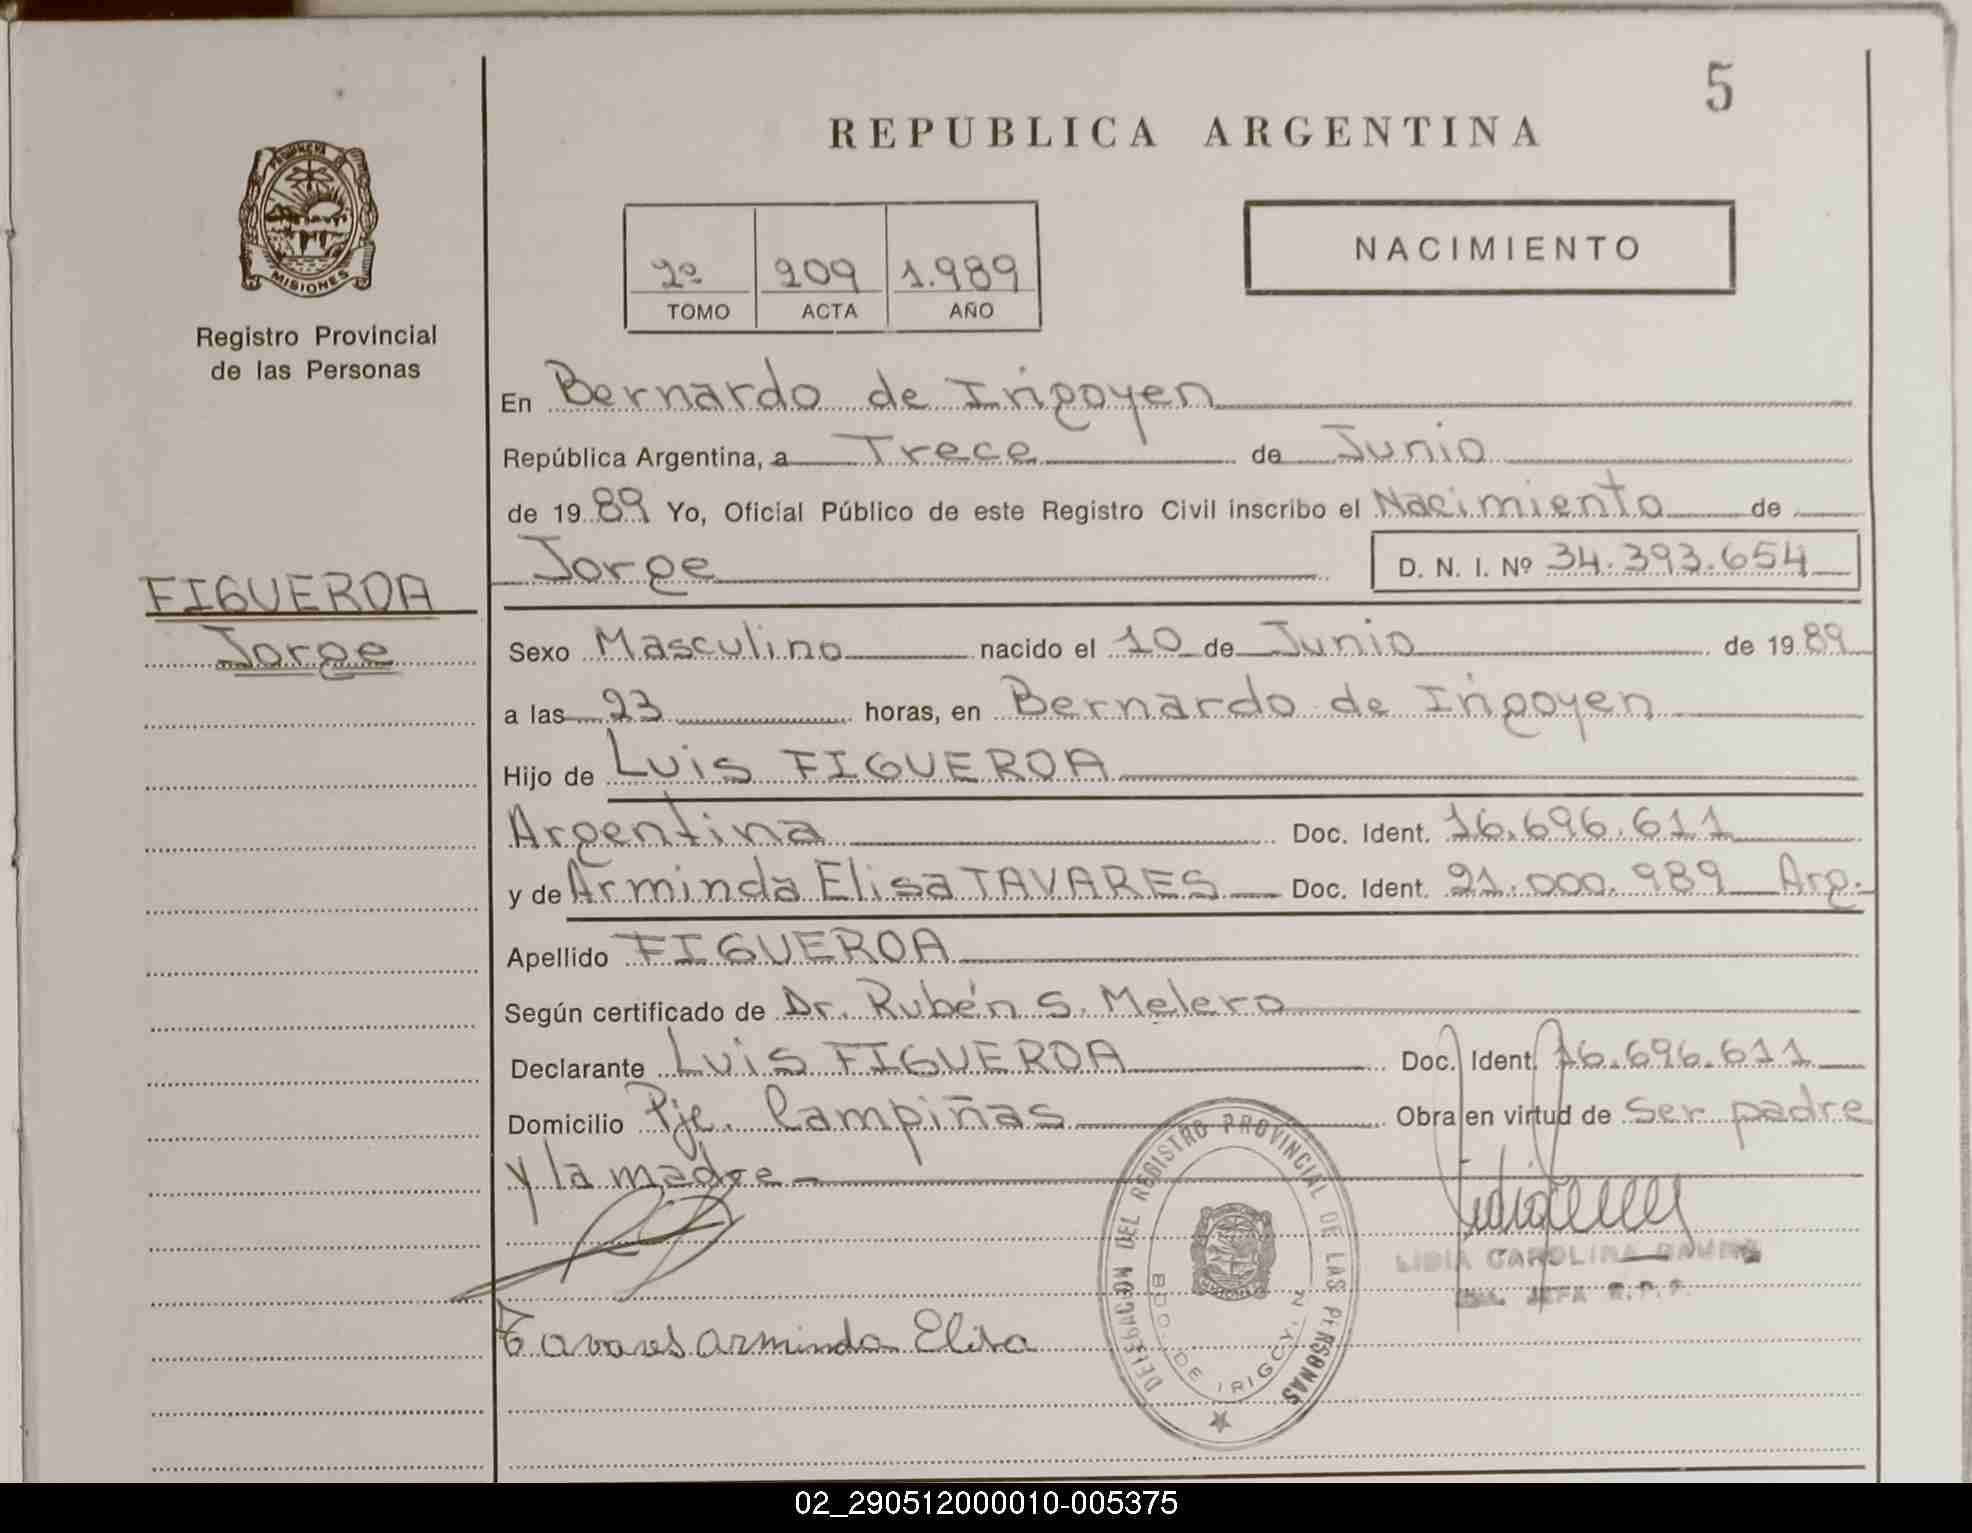 5
REPUBLICA ARGENTINA
PROVINCIA D
MISIONES
Registro Provincial
de las Personas
2º 209 1.989
TOMO ACTA AÑO
NACIMIENTO
En Bernardo de Irigoyen
República Argentina, a Trece de Junio
de 1989 Yo, Oficial Público de este Registro Civil inscribo el Nacimiento de
Jorge D. N. I. Nº 34.393.654
FIGUEROA
Jorge
Sexo Masculino nacido el 10 de Junio de 1989
a las 23 horas, en Bernardo de Irigoyen
Hijo de Luis FIGUEROA
Argentina Doc. Ident. 16.696.611
y de Arminda Elisa TAVARES Doc. Ident. 21.000.989 Arg.
Apellido FIGUEROA
Según certificado de Dr. Rubén S. Melero
Declarante Luis FIGUEROA Doc. Ident. 16.696.611
Domicilio Pje. Campiñas Obra en virtud de Ser padre
y la madre
DELEGACION DEL REGISTRO PROVINCIAL DE LAS PERSONAS
BDO. DE IRIGOYEN
LIDIA CAROLINA
JEFA R.P.P.
Tavares Arminda Elisa
02_290512000010-005375